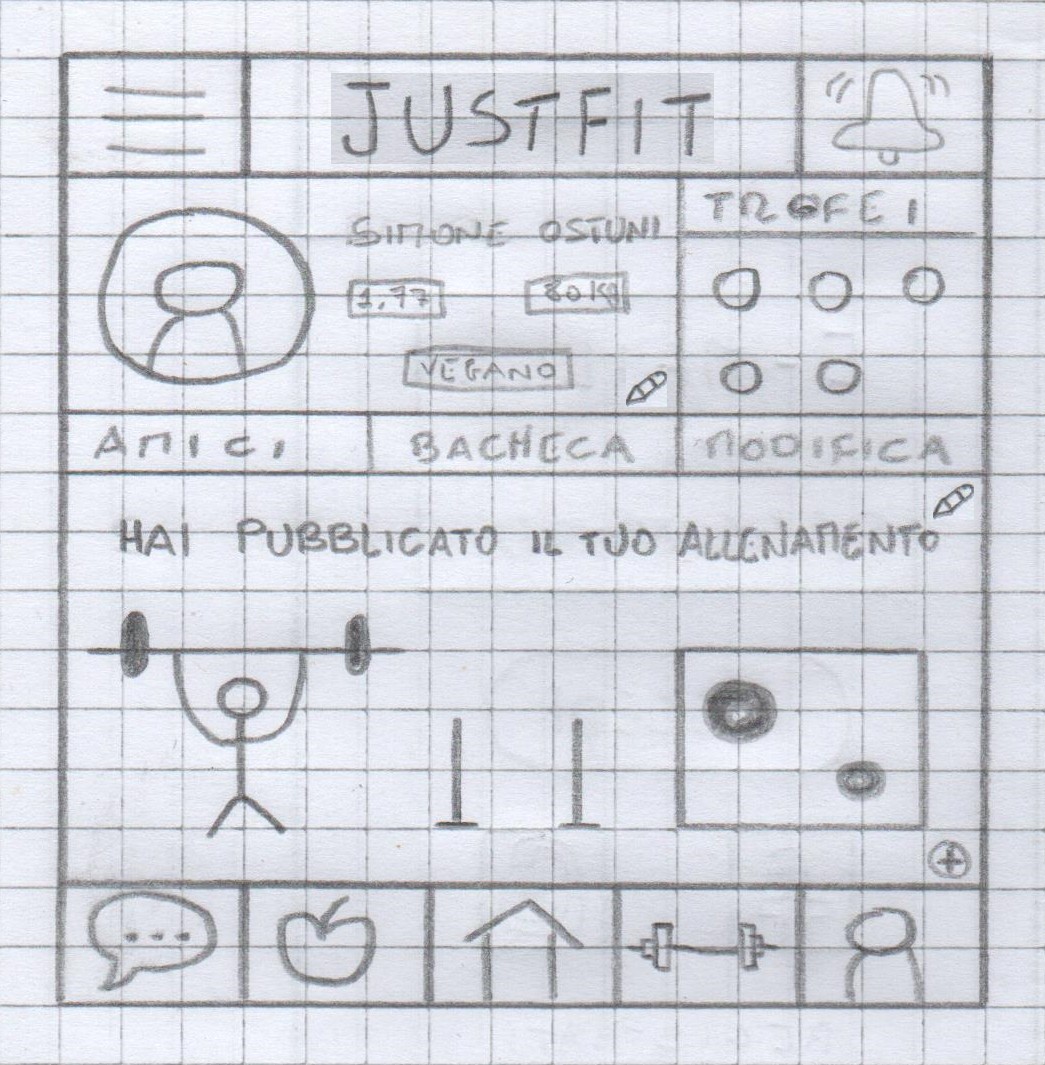 JUSTFIT
SIMONE OSTUNI
TROFEI
1,77
80KG
VEGANO
AMICI
BACHECA
MODIFICA
HAI PUBBLICATO IL TUO ALLENAMENTO